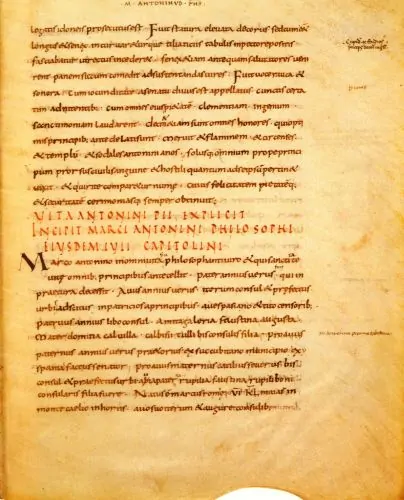 M · ANTONINUS · PHS ·
legatis idoneis prosecutus est · Fuit statura elevata decorus sed cum &
longus et senex incurvareturque tiliaticis tabulis in pectore positis
fasciabatur ut rectus incederet · senex etiam antequam salutatores ven
irent panem siccum comedit ad sustentandas vires · Fuit voce rauca et
sonora cum iucunditate a senatu divus est appellatus · cunctis certa
tim adnitentibus · cum omnes eius pietatem · clementiam · ingenium
sanctimoniam laudarent · decreti etiam sunt omnes honores · qui opti
mis principibus ante delati sunt · meruit & flaminem · & circenses
& templum · & sodales antoninianos · solusque omnium prope princi
pum prorsus civili sanguine & hostili quantum ad se ipsum pertinet
vixit · & qui rite comparetur numae · cuius felicitatem pietatemque
& securitatem cerimoniasque semper obtinuit ·
VITA ANTONINI PII EXPLICIT
INCIPIT MARCI ANTONINI PHILOSOPHI
EIUSDEM IULII CAPITOLINI
Marco antonino in omni vita philosophanti viro & qui sanctitate
vitae omnibus principibus antecellit · pater annius verus · qui in
praetura decessit · Avus annius verus · iterum consul & praefectus
urbi adscitus in patricios a principibus · vespasiano & tito censorib ·
patruus annius libo consul · Amita galeria faustina augusta
Mater domitia calvilla · calvisii tulli bis consulis filia · proavus
paternus annius verus praetorius ex succubitano municipio ex
spania factus senator · proavus maternus catilius severus bis
consul & praefectus urbi avia paterna rupilia faustina rupili boni
consularis filia fuere · Natus est marcus romae · VI · KL maias in
monte caelio in hortis · avo suo iterum & augure consulibus